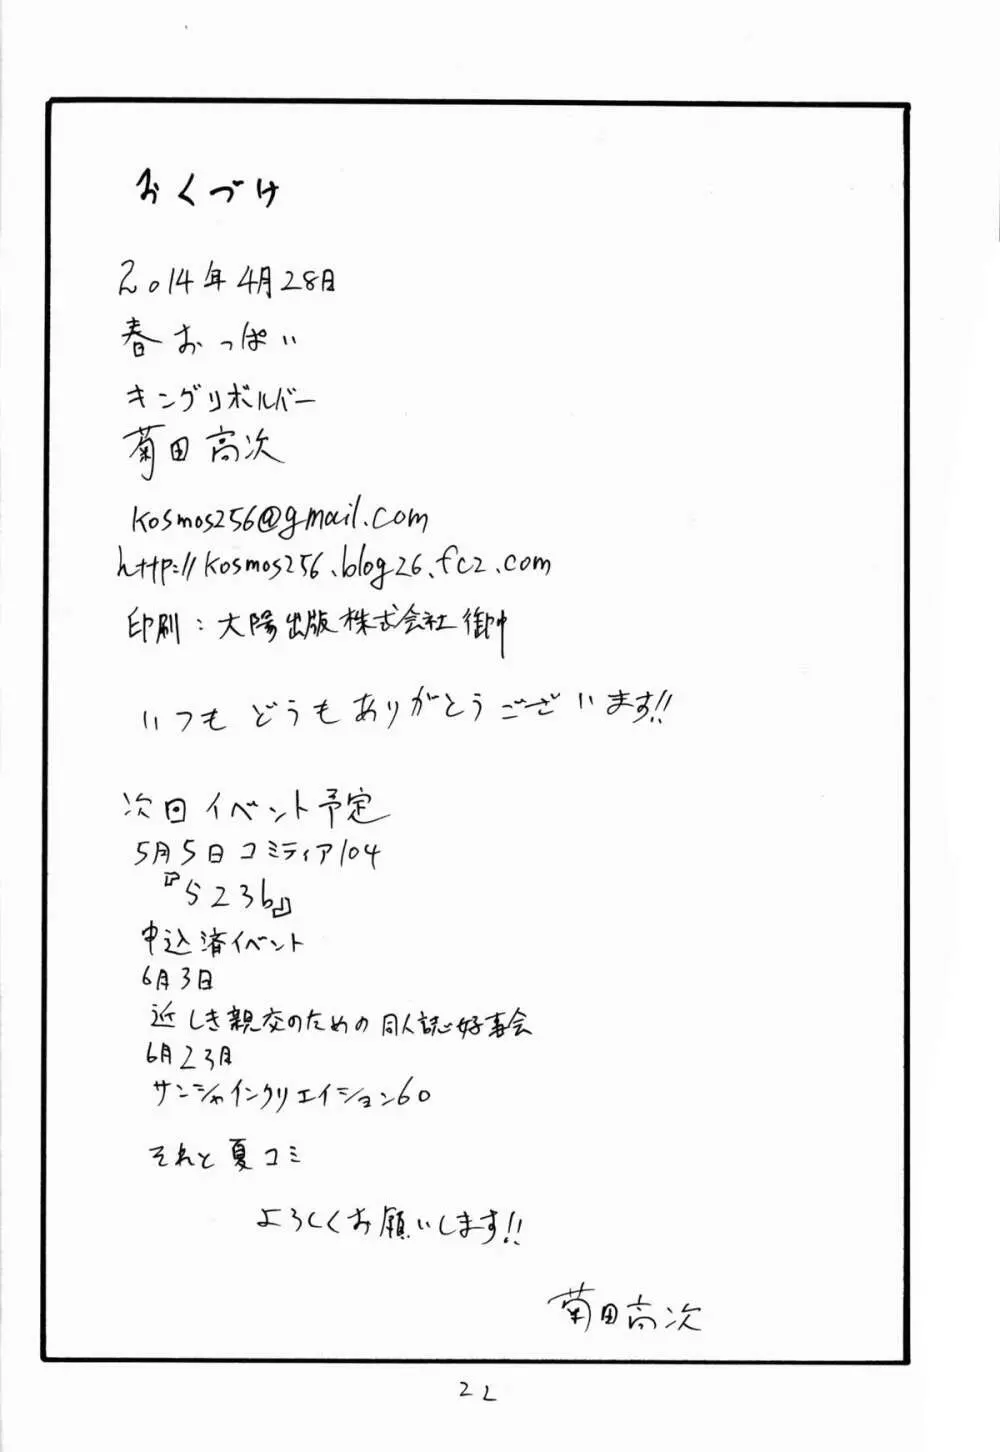 おくづけ
2014年4月28日
春おっぱい
キングリボルバー
菊田高次
kosmos256@gmail.com
http://kosmos256.blog26.fc2.com
印刷：大陽出版株式会社御中
いつもどうもありがとうございます!!
次回イベント予定
5月5日コミティア104
『S23b』
申込済イベント
6月3日
近しき親交のための同人誌好事会
6月23月
サンシャインクリエイション60
それと夏コミ
よろしくお願いします!!
菊田高次
22